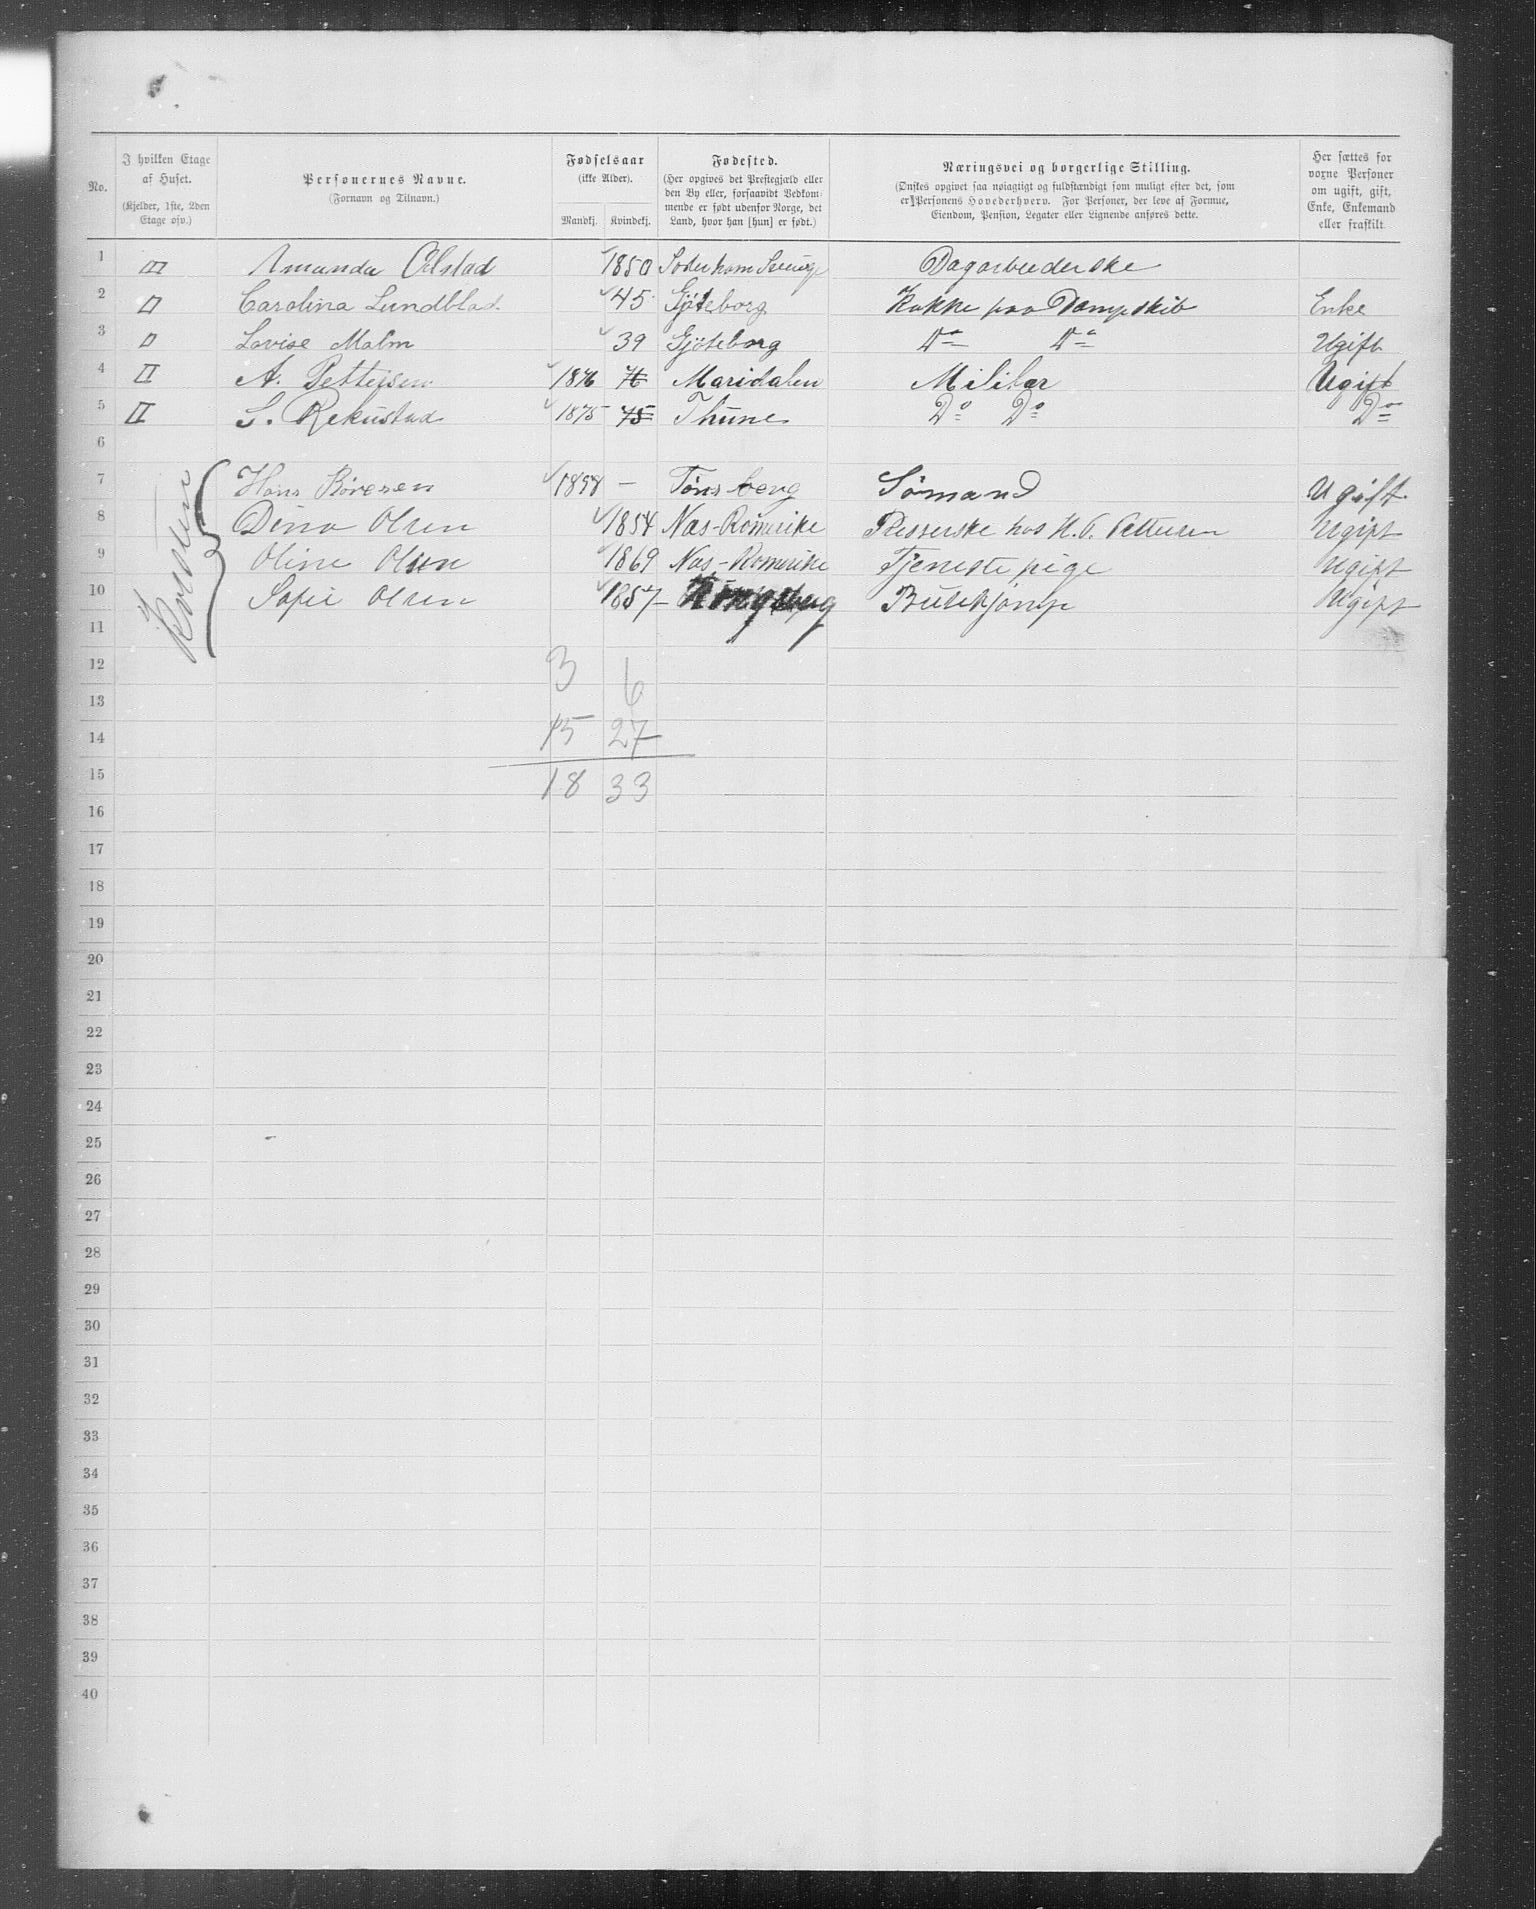 No.
I hvilken Etage af Huset. (Kjelder, 1ste, 2den Etage osv.)
Personernes Navne. (Fornavn og Tilnavn.)
Fødselsaar (ikke Alder). Mandkj. Kvindekj.
Fødested. (Her opgives det Prestegjæld eller den By eller, forsaavidt Vedkommende er født udenfor Norge, det Land, hvor han [hun] er født.)
Næringsvei og borgerlige Stilling. (Ønskes opgivet saa nøiagtigt og fuldstændigt som muligt efter det, som er Personens Hovederhverv. For Personer, der leve af Formue, Eiendom, Pension, Legater eller Lignende anføres dette.
Her sættes for voxne Personer om ugift, gift, Enke, Enkemand eller fraskilt
1 III Amanda 1850 Dagarbeiderske
2 II Carolina Lundblad 45 Gjøteborg Kokke paa Dampskib Enke
3 II Lovise Malm 39 Gjöteborg Do Do Ugift
4 II A. Pettersen 1876 76 Maridalen Militær Ugift
5 II S. Rekustad 1875 75 Thune Do Do Do
6
7 Hans Børesen 1858 – Tønsberg Sømand Ugift
8 Dina Olsen 1854 Næs-Romerike hos Ugift
9 Oline Olsen 1869 Næs-Romerike Tjenestepige Ugift
10 Sofie Olsen 1857 Kongsberg Ugift
11
12 3 6
13
14 15 27
15 18 33
16
17
18
19
20
21
22
23
24
25
26
27
28
29
30
31
32
33
34
35
36
37
38
39
40